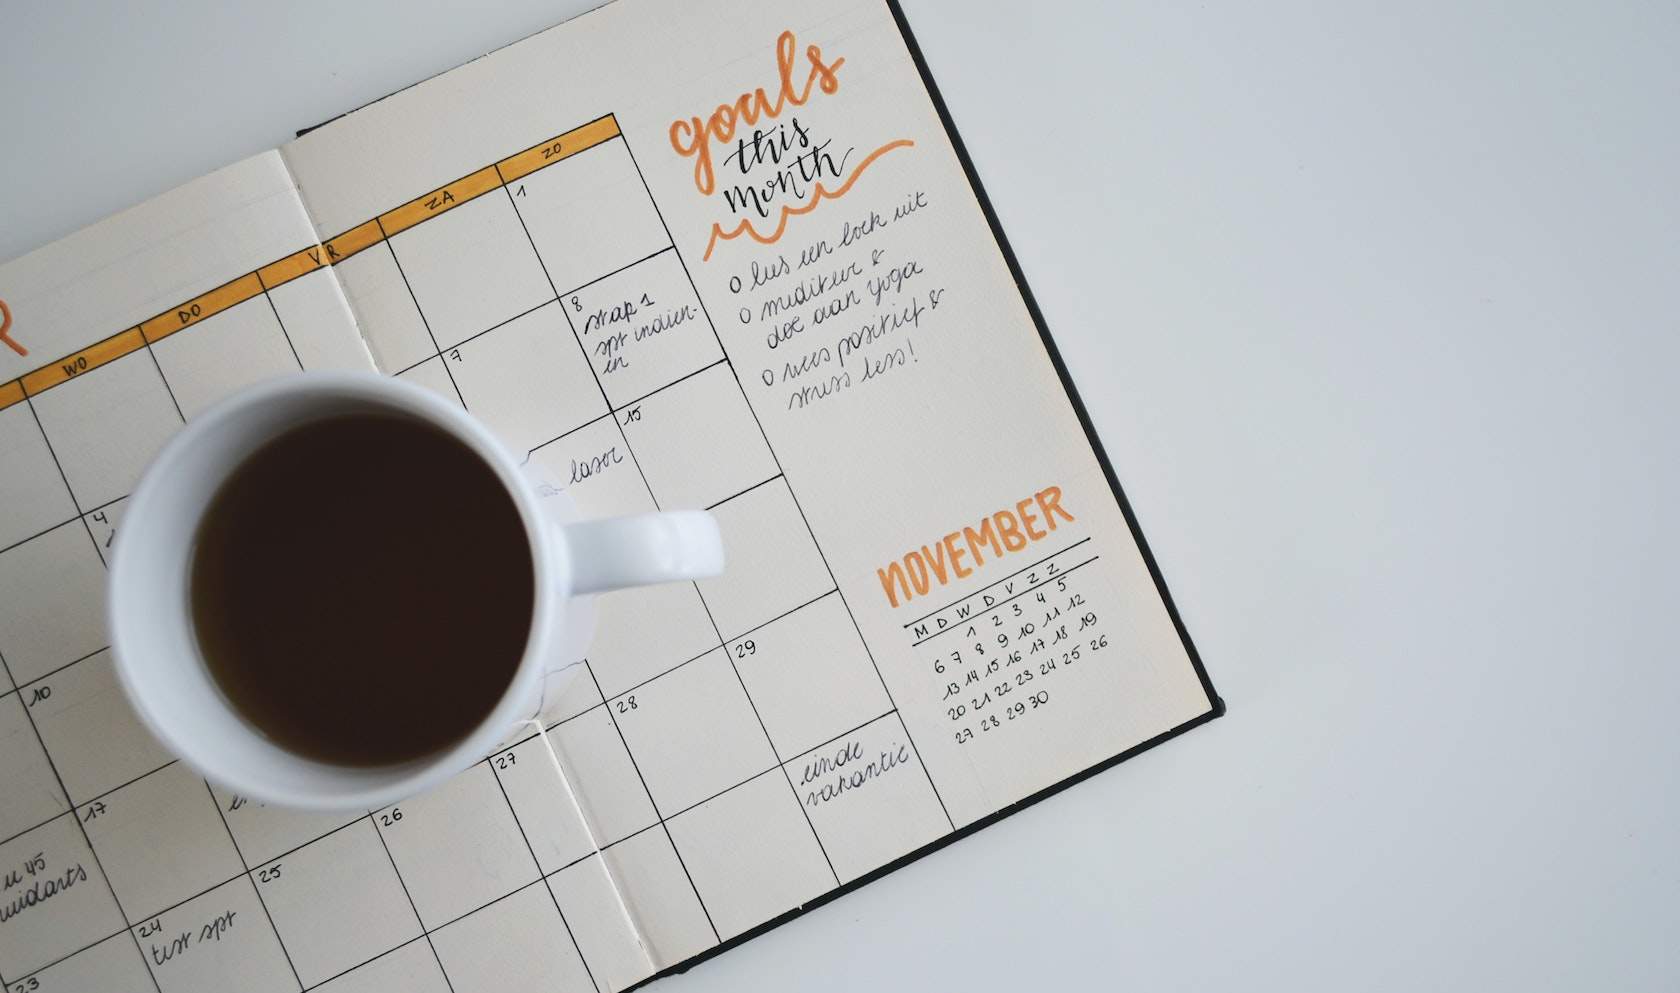 R
WO DO VR ZA ZO
1
7
8
stap 1
spt indien-
en
15
laser
4
10
17
u 45
24
test spt
23
25
26
27
28
29
einde
vakantie
goals
this
month
o lees een boek uit
o mediteer &
doe aan yoga
o wees positief &
stress less!
NOVEMBER
M D W D V Z Z
1 2 3 4 5
6 7 8 9 10 11 12
13 14 15 16 17 18 19
20 21 22 23 24 25 26
27 28 29 30